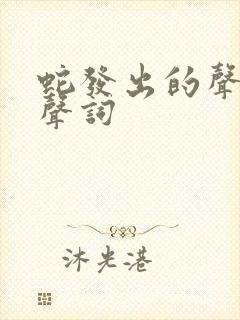 蛇發出的聲
聲詞
沐光港